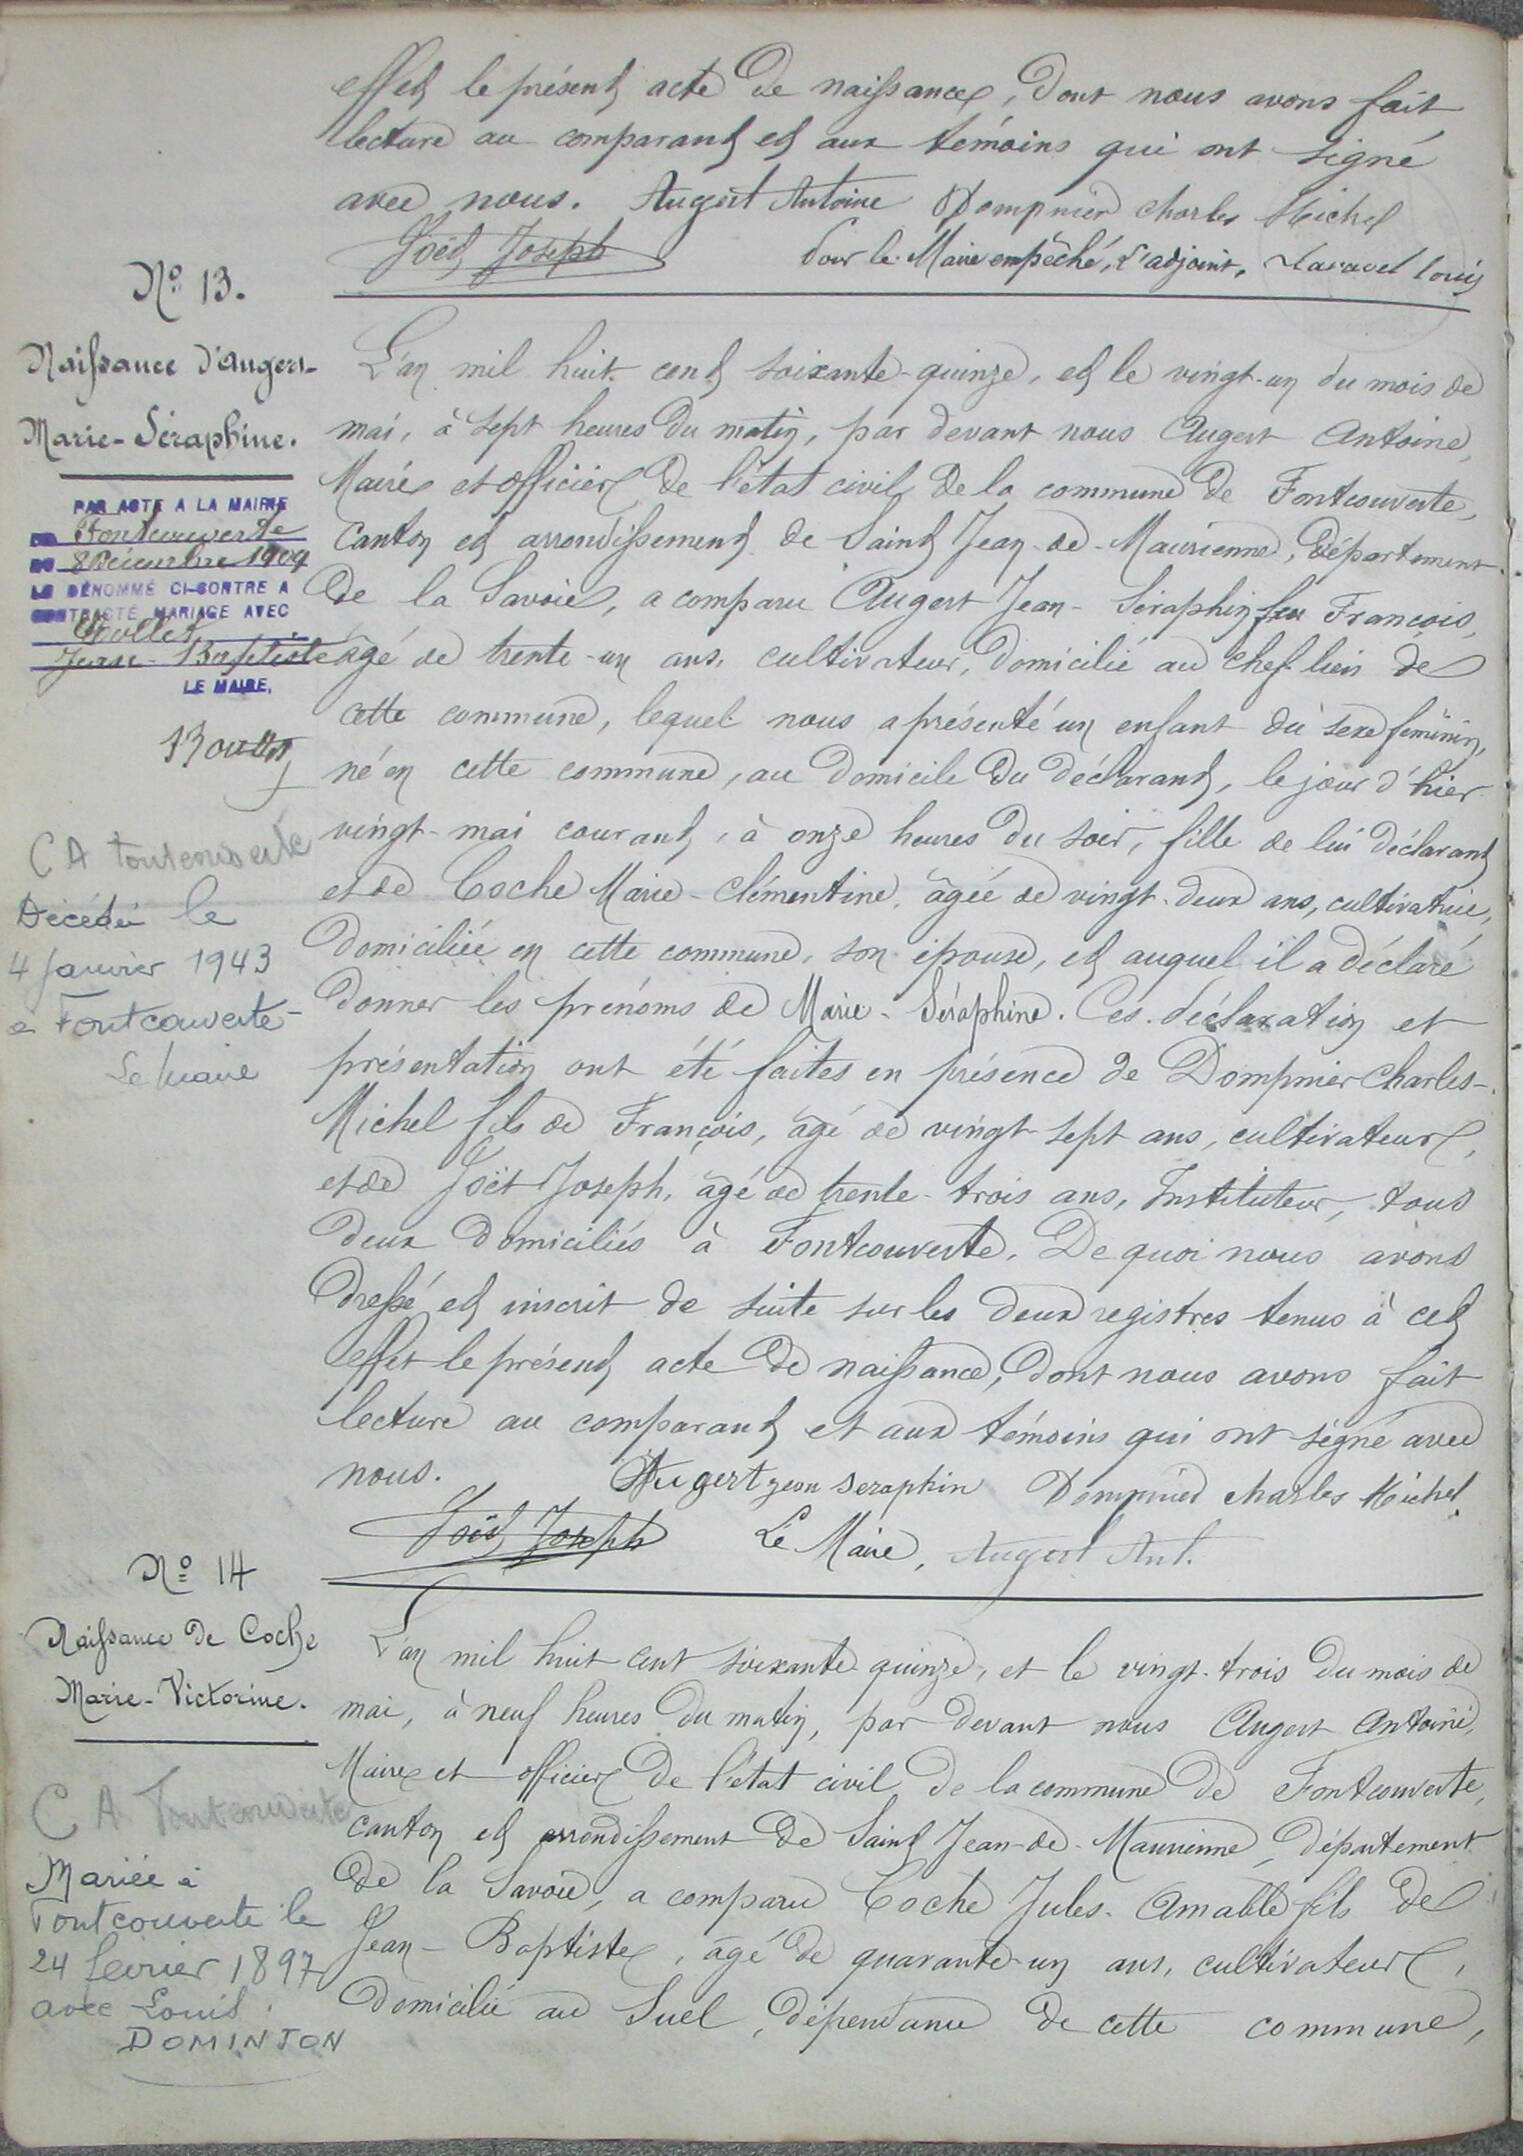 effet le présent acte de naissance, dont nous avons fait
lecture au comparant et aux témoins qui ont signé
avec nous. Augert Antoine Dompnier charles Michel
Joët Joseph Pour le Maire empêché, L'adjoint, Louis
N° 13.
Naissance d'Augert
Marie-Séraphine.
PAR ACTE A LA MAIRIE
DE Fontcouverte
DU 8 Décembre 1904
LE DÉNOMMÉ CI-CONTRE A
CONTRACTÉ MARIAGE AVEC
Jean-Baptiste
LE MAIRE,
C A Fontcouverte
Décédée le
4 Janvier 1943
à Fontcouverte
Le Maire
L'an mil huit cent soixante-quinze, et le vingt-un du mois de
mai, à sept heures du matin, par devant nous Augert Antoine,
Maire et officier de l'état civil de la commune de Fontcouverte,
Canton et arrondissement de Saint Jean-de-Maurienne, Département
de la Savoie, a comparu Augert Jean-Séraphin feu François,
âgé de trente-un ans, cultivateur, domicilié au chef-lieu de
cette commune, lequel nous a présenté un enfant du sexe féminin,
né en cette commune, au domicile du déclarant, le jour d'hier
vingt-mai courant, à onze heures du soir, fille de lui déclarant
et de Coche Marie-Clémentine, âgée de vingt-deux ans, cultivatrice,
domiciliée en cette commune, son épouse, et auquel il a déclaré
donner les prénoms de Marie-Séraphine. Ces déclaration et
présentation ont été faites en présence de Dompnier Charles-
Michel fils de François, âgé de vingt-sept ans, cultivateur,
et de Joët Joseph, âgé de trente-trois ans, Instituteur, tous
deux domiciliés à Fontcouverte. De quoi nous avons
dressé et inscrit de suite sur les deux registres tenus à cet
effet le présent acte de naissance, dont nous avons fait
lecture au comparant et aux témoins qui ont signé avec
nous. Augert jean seraphin Dompnier charles Michel
Joët Joseph Le Maire, Augert Ant.
N° 14
Naissance de Coche
Marie-Victorine.
C A Fontcouverte
Mariée à
Fontcouverte le
24 février 1897
avec Louis
DOMINJON
L'an mil huit cent soixante quinze, et le vingt-trois du mois de
mai, à neuf heures du matin, par devant nous Augert Antoine,
Maire et officier de l'état civil de la commune de Fontcouverte,
canton et arrondissement de Saint Jean-de-Maurienne, département
de la Savoie, a comparu Coche Jules-Amable fils de
Jean-Baptiste, âgé de quarante-un ans, cultivateur,
domicilié au Suel, dépendance de cette commune,